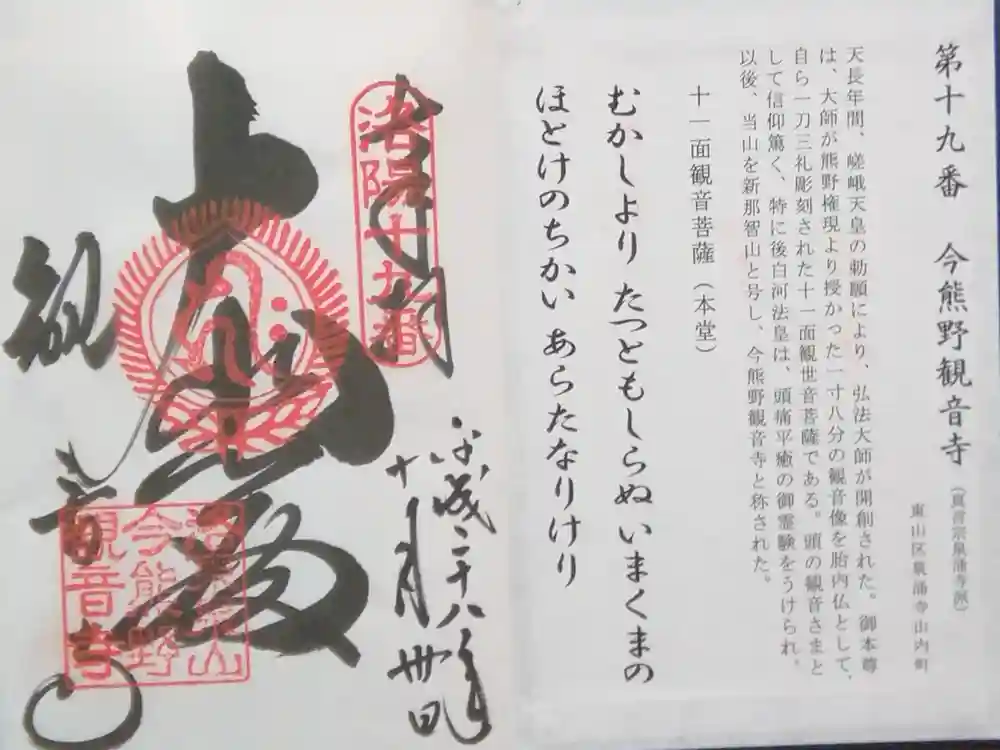 第十九番 今熊野観音寺 (真言宗泉涌寺派)
東山区泉涌寺山内町
天長年間、嵯峨天皇の勅願により、弘法大師が開創された。御本尊
は、大師が熊野権現より授かった一寸八分の観音像を胎内仏として、
自ら一刀三礼彫刻された十一面観世音菩薩である。頭の観音さまと
して信仰篤く、特に後白河法皇は、頭痛平癒の御霊験をうけられ、
以後、当山を新那智山と号し、今熊野観音寺と称された。
十一面観音菩薩(本堂)
むかしより たつともしらぬ いまくまの
ほとけのちかい あらたなりけり
洛陽十九番
平成二十八年
十月卅日
観音寺
今熊野
観音寺